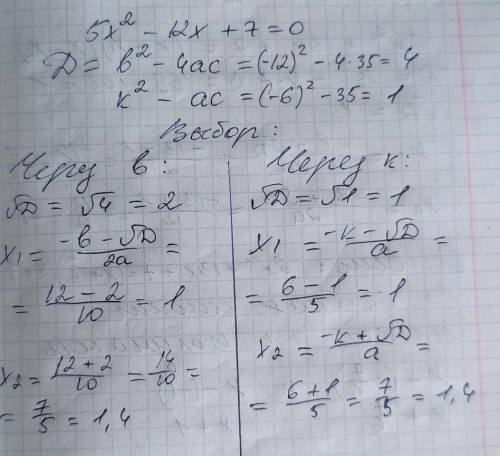 5x² - 12x + 7 = 0
D = b² - 4ac = (-12)² - 4·35 = 4
k² - ac = (-6)² - 35 = 1
Выбор:
Через b:
√D = √4 = 2
x₁ = (-b - √D)/2a =
= (12 - 2)/10 = 1
x₂ = (12 + 2)/10 = 14/10 =
= 7/5 = 1,4
Через k:
√D = √1 = 1
x₁ = (-k - √D)/a =
= (6 - 1)/5 = 1
x₂ = (-k + √D)/a =
= (6 + 1)/5 = 7/5 = 1,4